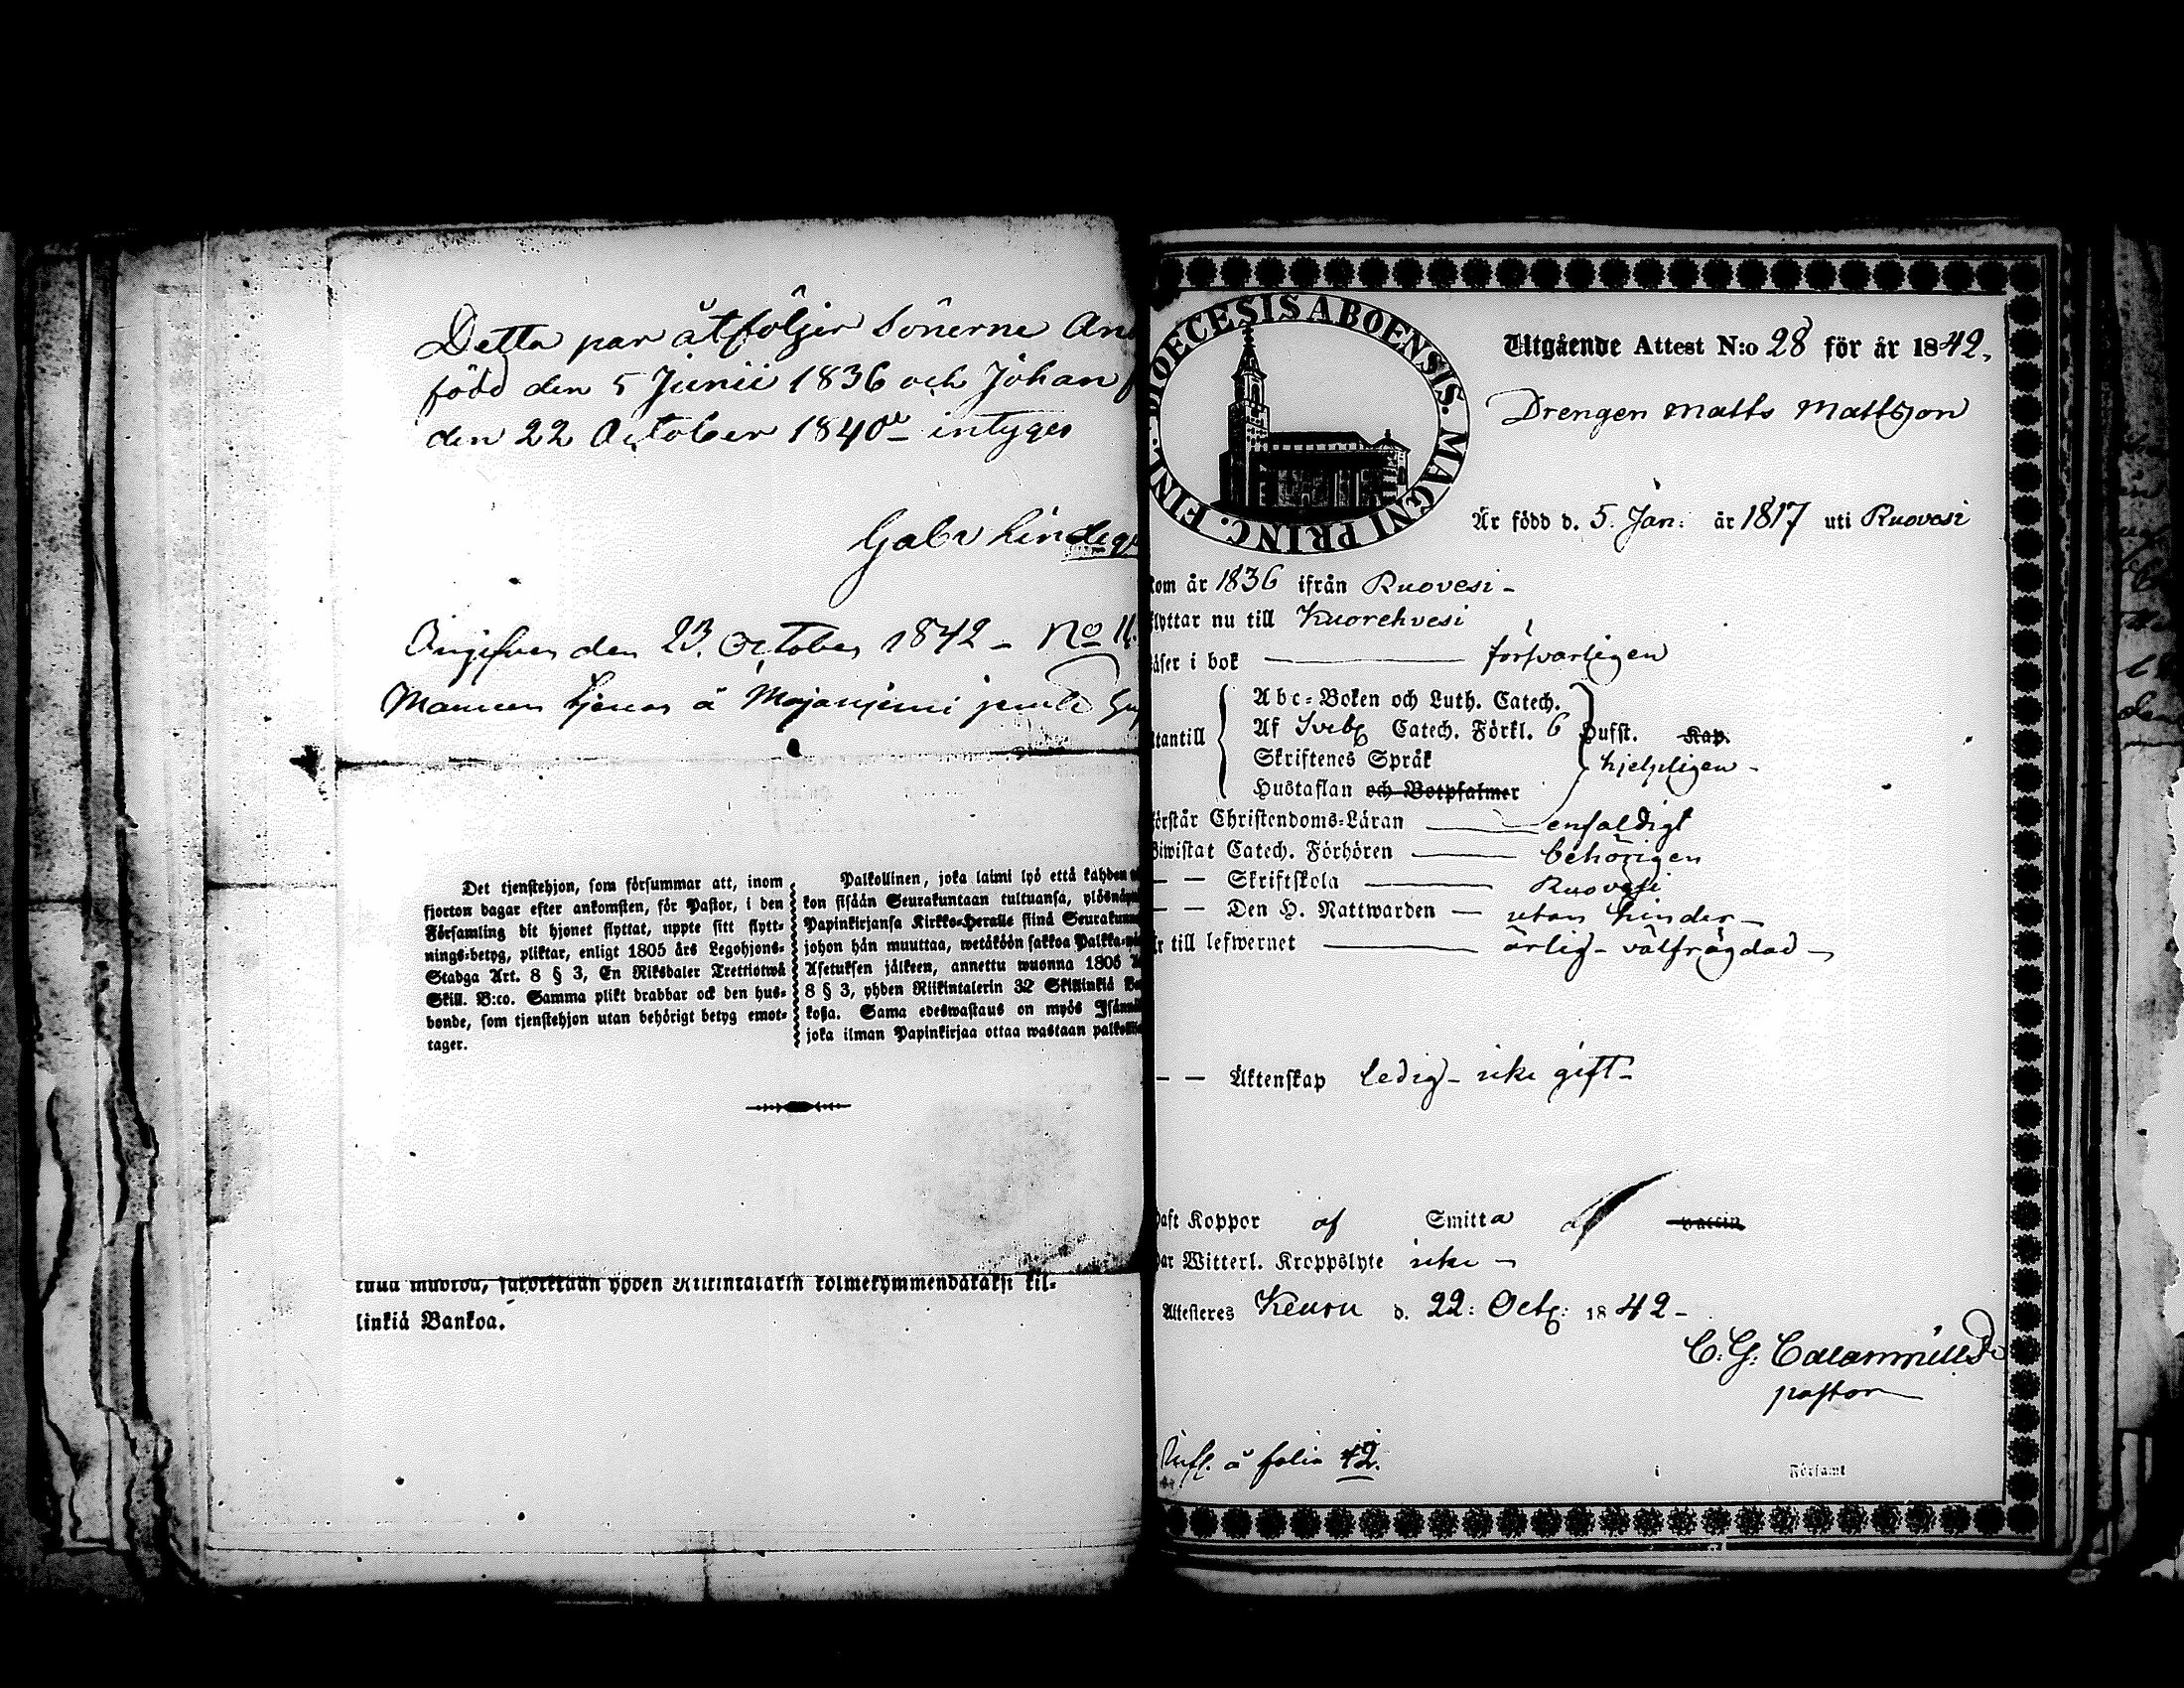 Detta par åtföljer Sönerne An
född den 5 Junii 1836 och Johan
den 22 October 1840 intygas
Gabr Lindeq
Angifven den 23. October 1842 - No 11.
Mannen tjenar å Majaniemi
Det tjenstehjon, som försummar att, inom
fjorton dagar efter ankomsten, för Pastor, i den
Församling dit hjonet flyttat, uppte sitt flytt-
nings-betyg, pliktar, enligt 1805 års Legohjons-
Stadga Art. 8 § 3, En Riksdaler Trettiotwå
Skill. B:co. Samma plikt drabbar ock den hus-
bonde, som tjenstehjon utan behörigt betyg emot-
tager.
Palkollinen, joka laimi lyö että kahden
kon sisään Seurakuntaan tultuansa, ylösnäy
Papinkirjansa Kirkko-Heralle siinä Seurakunn
johon hän muuttaa, wetäköön sakkoa Palkka-
Asetuksen jälkeen, annettu wuonna 1805
8 § 3, yhden Riikintalerin 32 Skillinkiä
koßa. Sama edeswastaus on myös Isännä
joka ilman Papinkirjaa ottaa wastaan palkolli
yhden Riikintalarin kolmekymmendäkaksi kil-
linkiä Bankoa.
DIOECESIS ABOENSIS. MAGNI PRINC. FINL.
Utgående Attest N:o 28 för år 1842.
Drengen Matts Mattsson
Är född d. 5. Jan: år 1817 uti Ruovesi
kom år 1836 ifrån Ruovesi -
flyttar nu till Kuorehvesi
läser i bok försvarligen
utantill
Abc-Boken och Luth. Catech.
Af Sveb. Catech. Förkl. 6 Hufst. Kap.
Skriftenes Språk hjelpligen -
Hustaflan och Botpsalmer
förstår Christendoms-Läran enfaldigt
Biwistat Catech. Förhören behörigen
— — Skriftskola Ruovesi
— — Den H. Nattwarden — utan hinder -
Är till lefwernet ärlig - välfrägdad -
— — Äktenskap ledig - icke gift -
haft Koppor af Smitta af vaccin
har Witterl. Kroppslyte icke -
Attesteres Keuru d. 22: Oct: 1842 -
C. G:
pastor
Infl. å folio 42.
i Församl